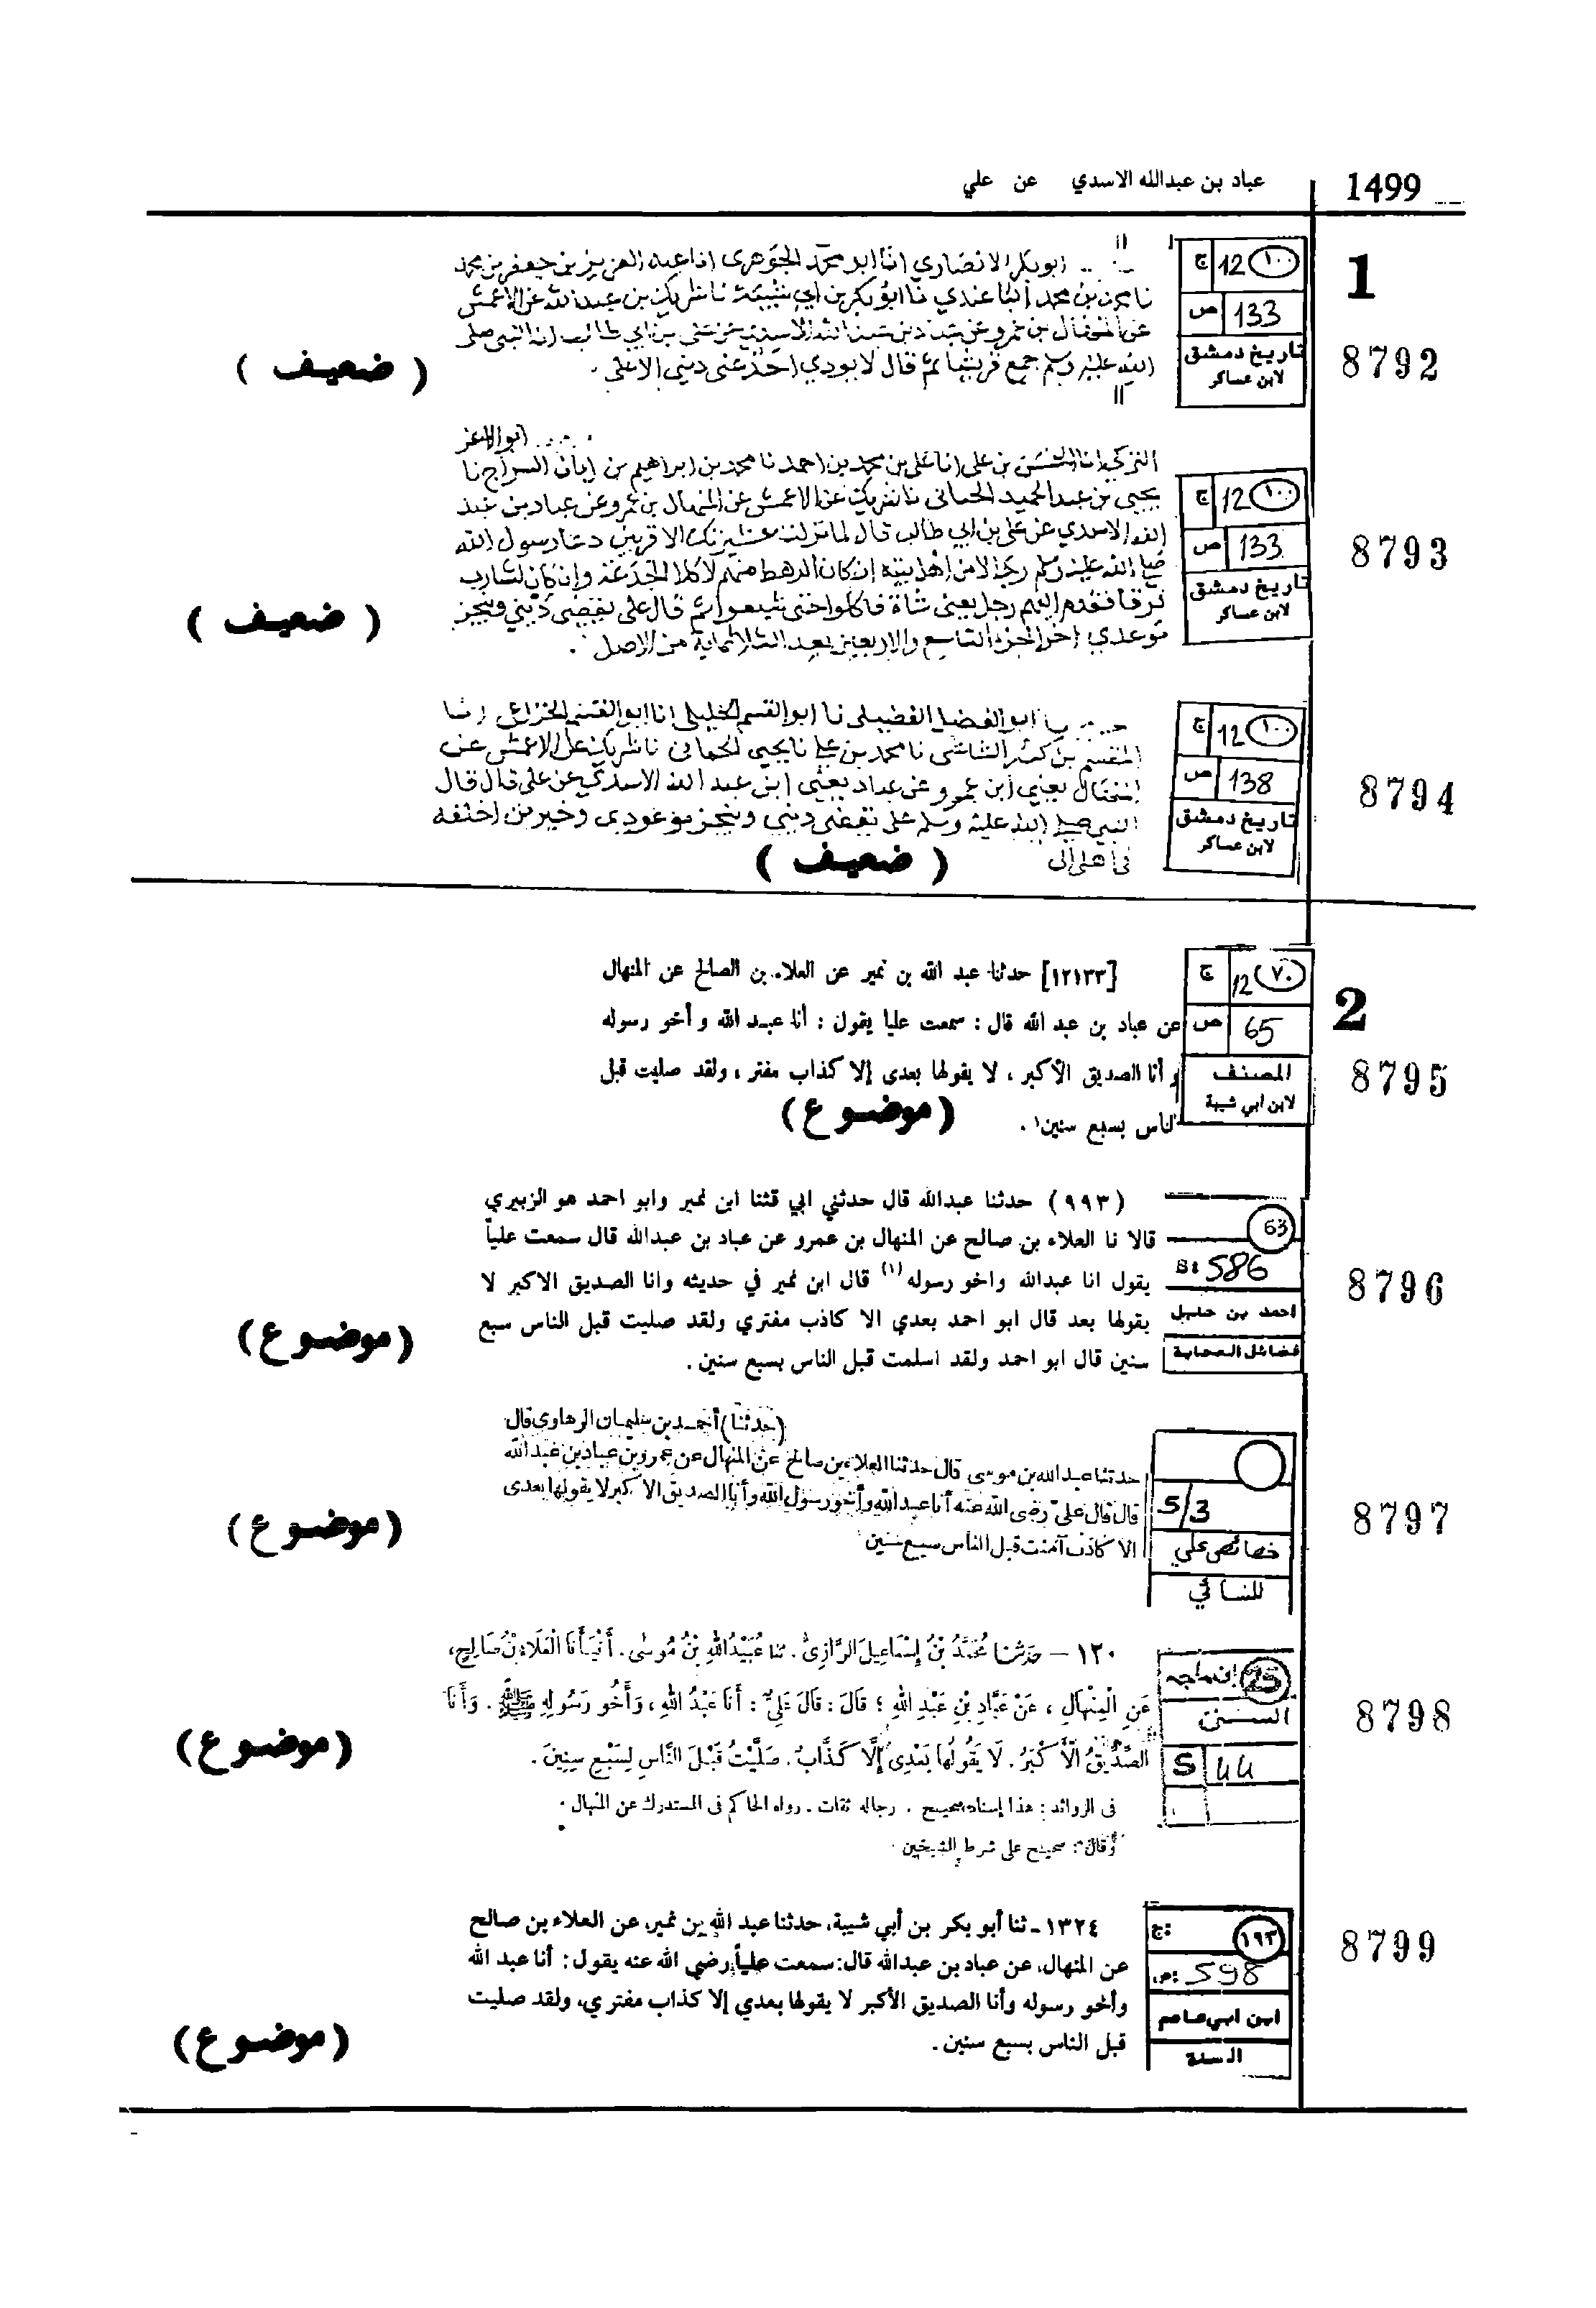 1499
عباد بن عبدالله الاسدي عن علي
1
8792
ج 12 ١٠٠
ص 133
تاريخ دمشق
لابن عساكر
ابو بكر الانصاري انا ابو محمد الجوهري انا عبد العزيز بن جعفر بن محمد
شريك بن عبد الله عن الاعمش
علي بن ابي طالب ان النبي صلى
الله عليه وسلم جمع قريشا ثم قال لا يودي احد عني ديني الا علي .
( ضعيف )
8793
ج 12 ١٠٠
ص 133
تاريخ دمشق
لابن عساكر
ابو الاعز
التركي انا الحسن بن علي انا علي بن محمد بن احمد نا محمد بن ابراهيم بن ابان السراج نا
يحيى بن عبد الحميد الحماني نا شريك عن الاعمش عن المنهال بن عمرو عن عباد بن عبد
الله الاسدي عن علي بن ابي طالب قال لما نزلت عشيرتك الاقربين دعا رسول الله
صلى الله عليه وسلم رجالا من اهل بيته ان كان الرهط منهم لآكلا الجذعة وان كان لشارب
فرقا فقدم اليهم رجل يعني شاة فاكلوا حتى شبعوا ثم قال علي يقضي ديني وينجز
موعدي اخر الجزء التاسع والاربعين بعد الثلاثماية من الاصل .
( ضعيف )
8794
ج 12 ١٠٠
ص 138
تاريخ دمشق
لابن عساكر
ابو الفضل الفضيلي نا ابو القسم الخليلي انا ابو القسم الخزاعي
الشاشي نا محمد بن علي نا يحيى الحماني نا شريك عن الاعمش عن
المنهال يعني ابن عمرو عن عباد يعني ابن عبد الله الاسدي عن علي قال قال
النبي صلى الله عليه وسلم علي يقضي ديني وينجز موعودي وخير من اخلفه
في اهلي
( ضعيف )
2
8795
ج 12 ٧٠
ص 65
المصنف
لابن ابي شيبة
[١٢١٣٣] حدثنا عبد الله بن نمير عن العلاء بن الصالح عن المنهال
عن عباد بن عبد الله قال : سمعت عليا يقول : أنا عبد الله و أخو رسوله
و أنا الصديق الأكبر ، لا يقولها بعدى إلا كذاب مفتر ، ولقد صليت قبل
الناس بسبع سنين١ .
(موضوع)
8796
63
S: 586
احمد بن حنبل
فضائل الصحابة
(٩٩٣) حدثنا عبدالله قال حدثني ابي قثنا ابن نمير وابو احمد هو الزبيري
قالا نا العلاء بن صالح عن المنهال بن عمرو عن عباد بن عبدالله قال سمعت علياً
يقول انا عبدالله واخو رسوله (١) قال ابن نمير في حديثه وانا الصديق الاكبر لا
يقولها بعد قال ابو احمد بعدي الا كاذب مفتري ولقد صليت قبل الناس سبع
سنين قال ابو احمد ولقد اسلمت قبل الناس بسبع سنين .
(موضوع)
8797
S/3
خصائص علي
للنسائي
(حدثنا) أحمد بن سليمان الرهاوى قال
حدثنا عبد الله بن موسى قال حدثنا العلاء بن صالح عن المنهال عن عمرو بن عباد بن عبد الله
قال قال على رضى الله عنه أنا عبد الله وأخو رسول الله وأنا الصديق الاكبر لا يقولها بعدى
الا كاذب آمنت قبل الناس سبع سنين
(موضوع)
8798
ابن ماجه 25
السنن
S 44
١٢٠ — حَدَّثَنَا مُحَمَّدُ بْنُ إِسْمَاعِيلَ الرَّازِىُّ . ثنا عُبَيْدُ اللهِ بْنُ مُوسَى . أَنْبَأَنَا الْعَلَاءُ بْنُ صَالِحٍ ،
عَنِ الْمِنْهَالِ ، عَنْ عَبَّادِ بْنِ عَبْدِ اللهِ ؛ قَالَ : قَالَ عَلِيٌّ : أَنَا عَبْدُ اللهِ ، وَأَخُو رَسُولِهِ ﷺ . وَأَنَا
الصِّدِّيقُ الْأَكْبَرُ . لَا يَقُولُهَا بَعْدِى إِلَّا كَذَّابٌ . صَلَّيْتُ قَبْلَ النَّاسِ لِسَبْعِ سِنِينَ .
فى الزوائد : هذا إسناد صحيح . رجاله ثقات . رواه الحاكم فى المستدرك عن المنهال .
وقال : صحيح على شرط الشيخين .
(موضوع)
8799
ج: ١٩٣
ص: 598
ابن ابي عاصم
السنة
١٣٢٤ ـ ثنا أبو بكر بن أبي شيبة، حدثنا عبد الله بن نمير، عن العلاء بن صالح
عن المنهال، عن عباد بن عبدالله قال: سمعت علياً رضي الله عنه يقول: أنا عبد الله
وأخو رسوله وأنا الصديق الأكبر لا يقولها بعدي إلا كذاب مفتري، ولقد صليت
قبل الناس بسبع سنين .
(موضوع)